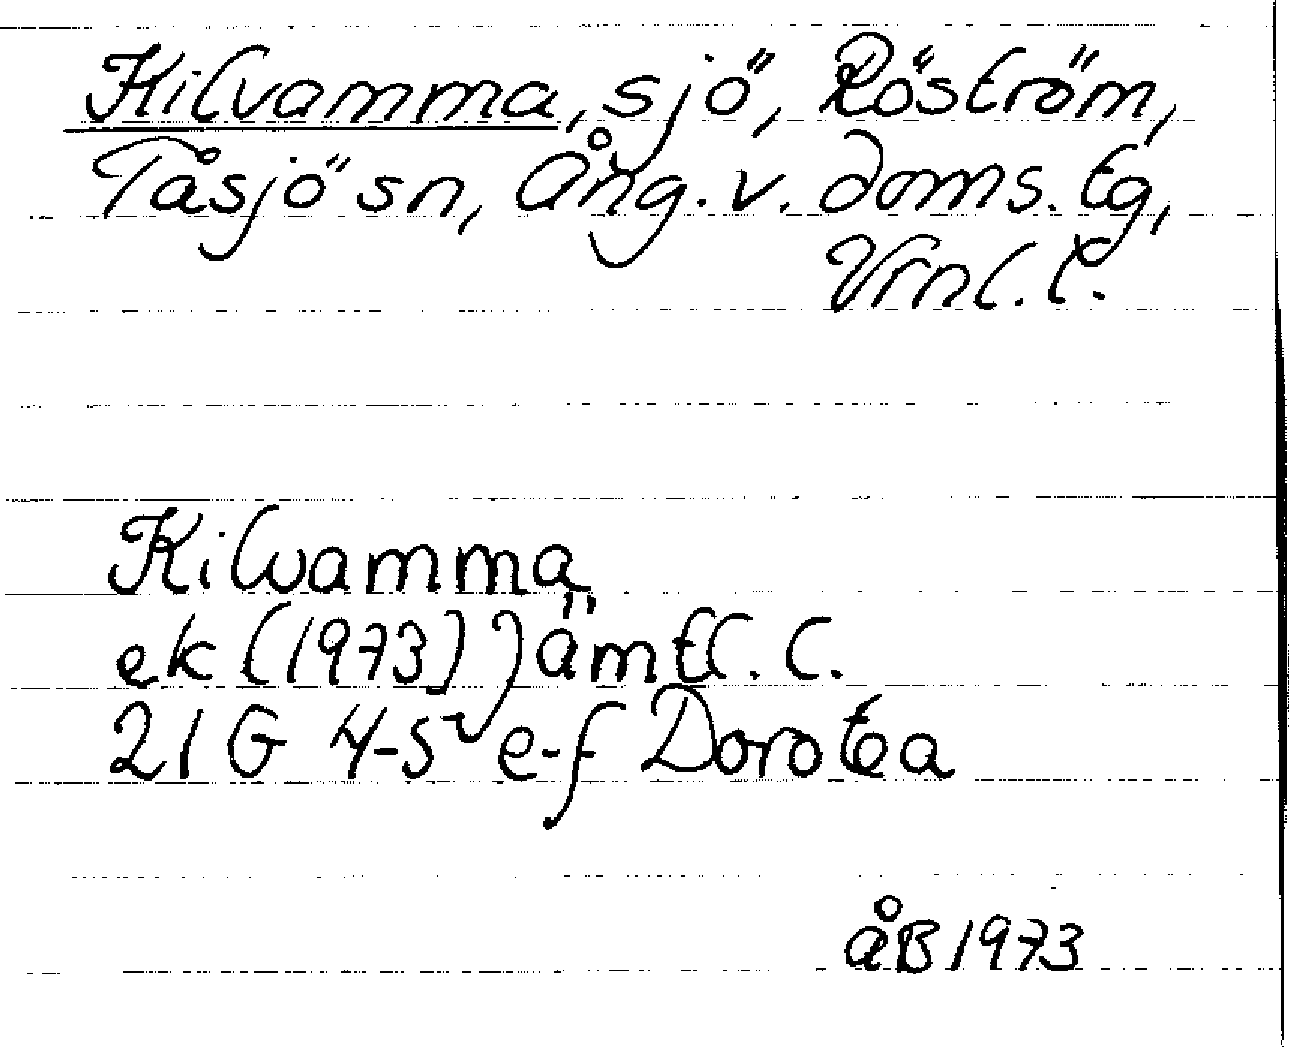 Kilvamma, sjö, Röström,
Tåsjö sn, Ång. v. doms. tg,
Vrnl. l.
Kilvamma
ek (1973) Jämtl. l.
21 G 4-5 e-f Dorotea
åB 1973